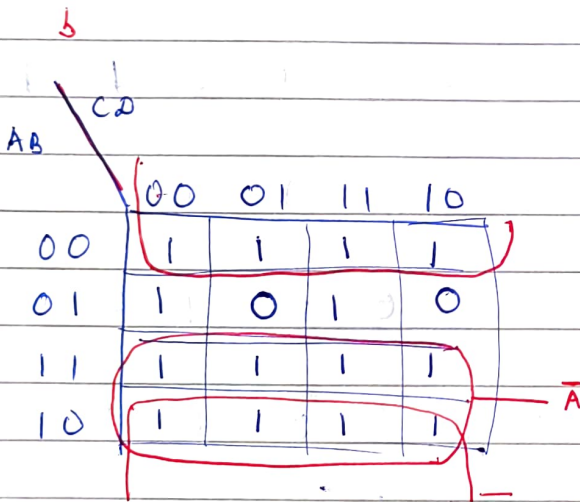 b
CD
AB
00 01 11 10
00 1 1 1 1
01 1 0 1 0
11 1 1 1 1
A̅
10 1 1 1 1